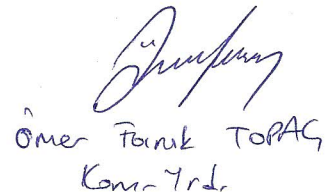 Ömer Faruk TOPAÇ
Kom. Yrd.